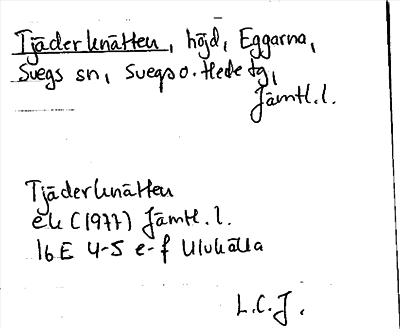 Tjäderknätten, höjd, Eggarna,
Svegs sn, Svegs o. Hede tg,
Jämtl. l.
Tjäderknätten
ek (1977) Jämtl. l.
16E 4-5 e-f Ulvkälla
L.C.J.